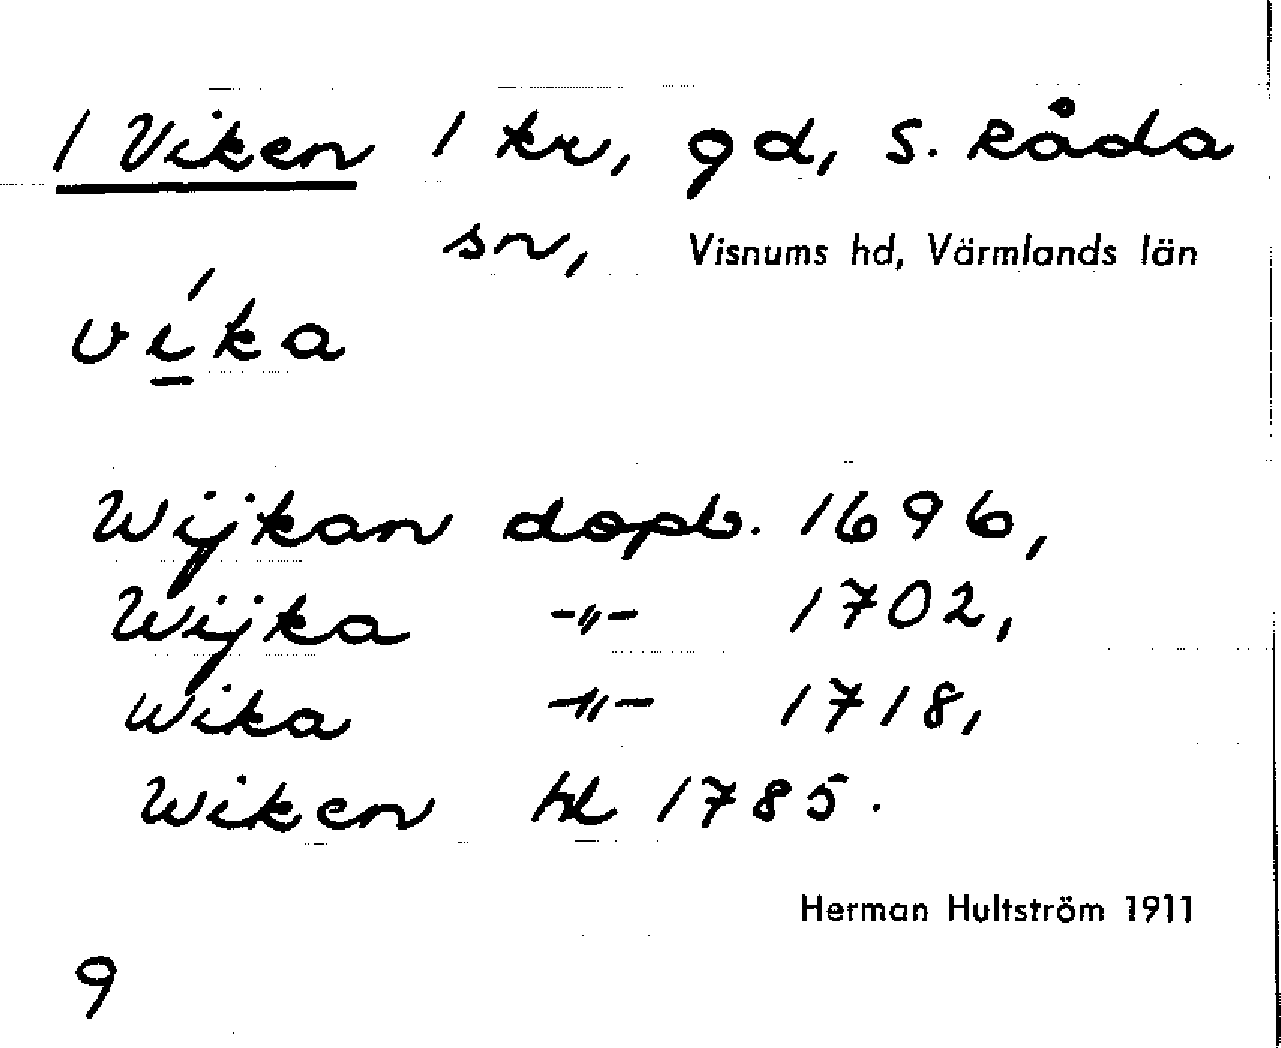 1 Viken 1 kr, gd, S. Råda
sn, Visnums hd, Värmlands län
víka
Wijkan dopb. 1696,
Wijka -"- 1702,
Wika -"- 1718,
Wiken hl 1785.
Herman Hultström 1911
9